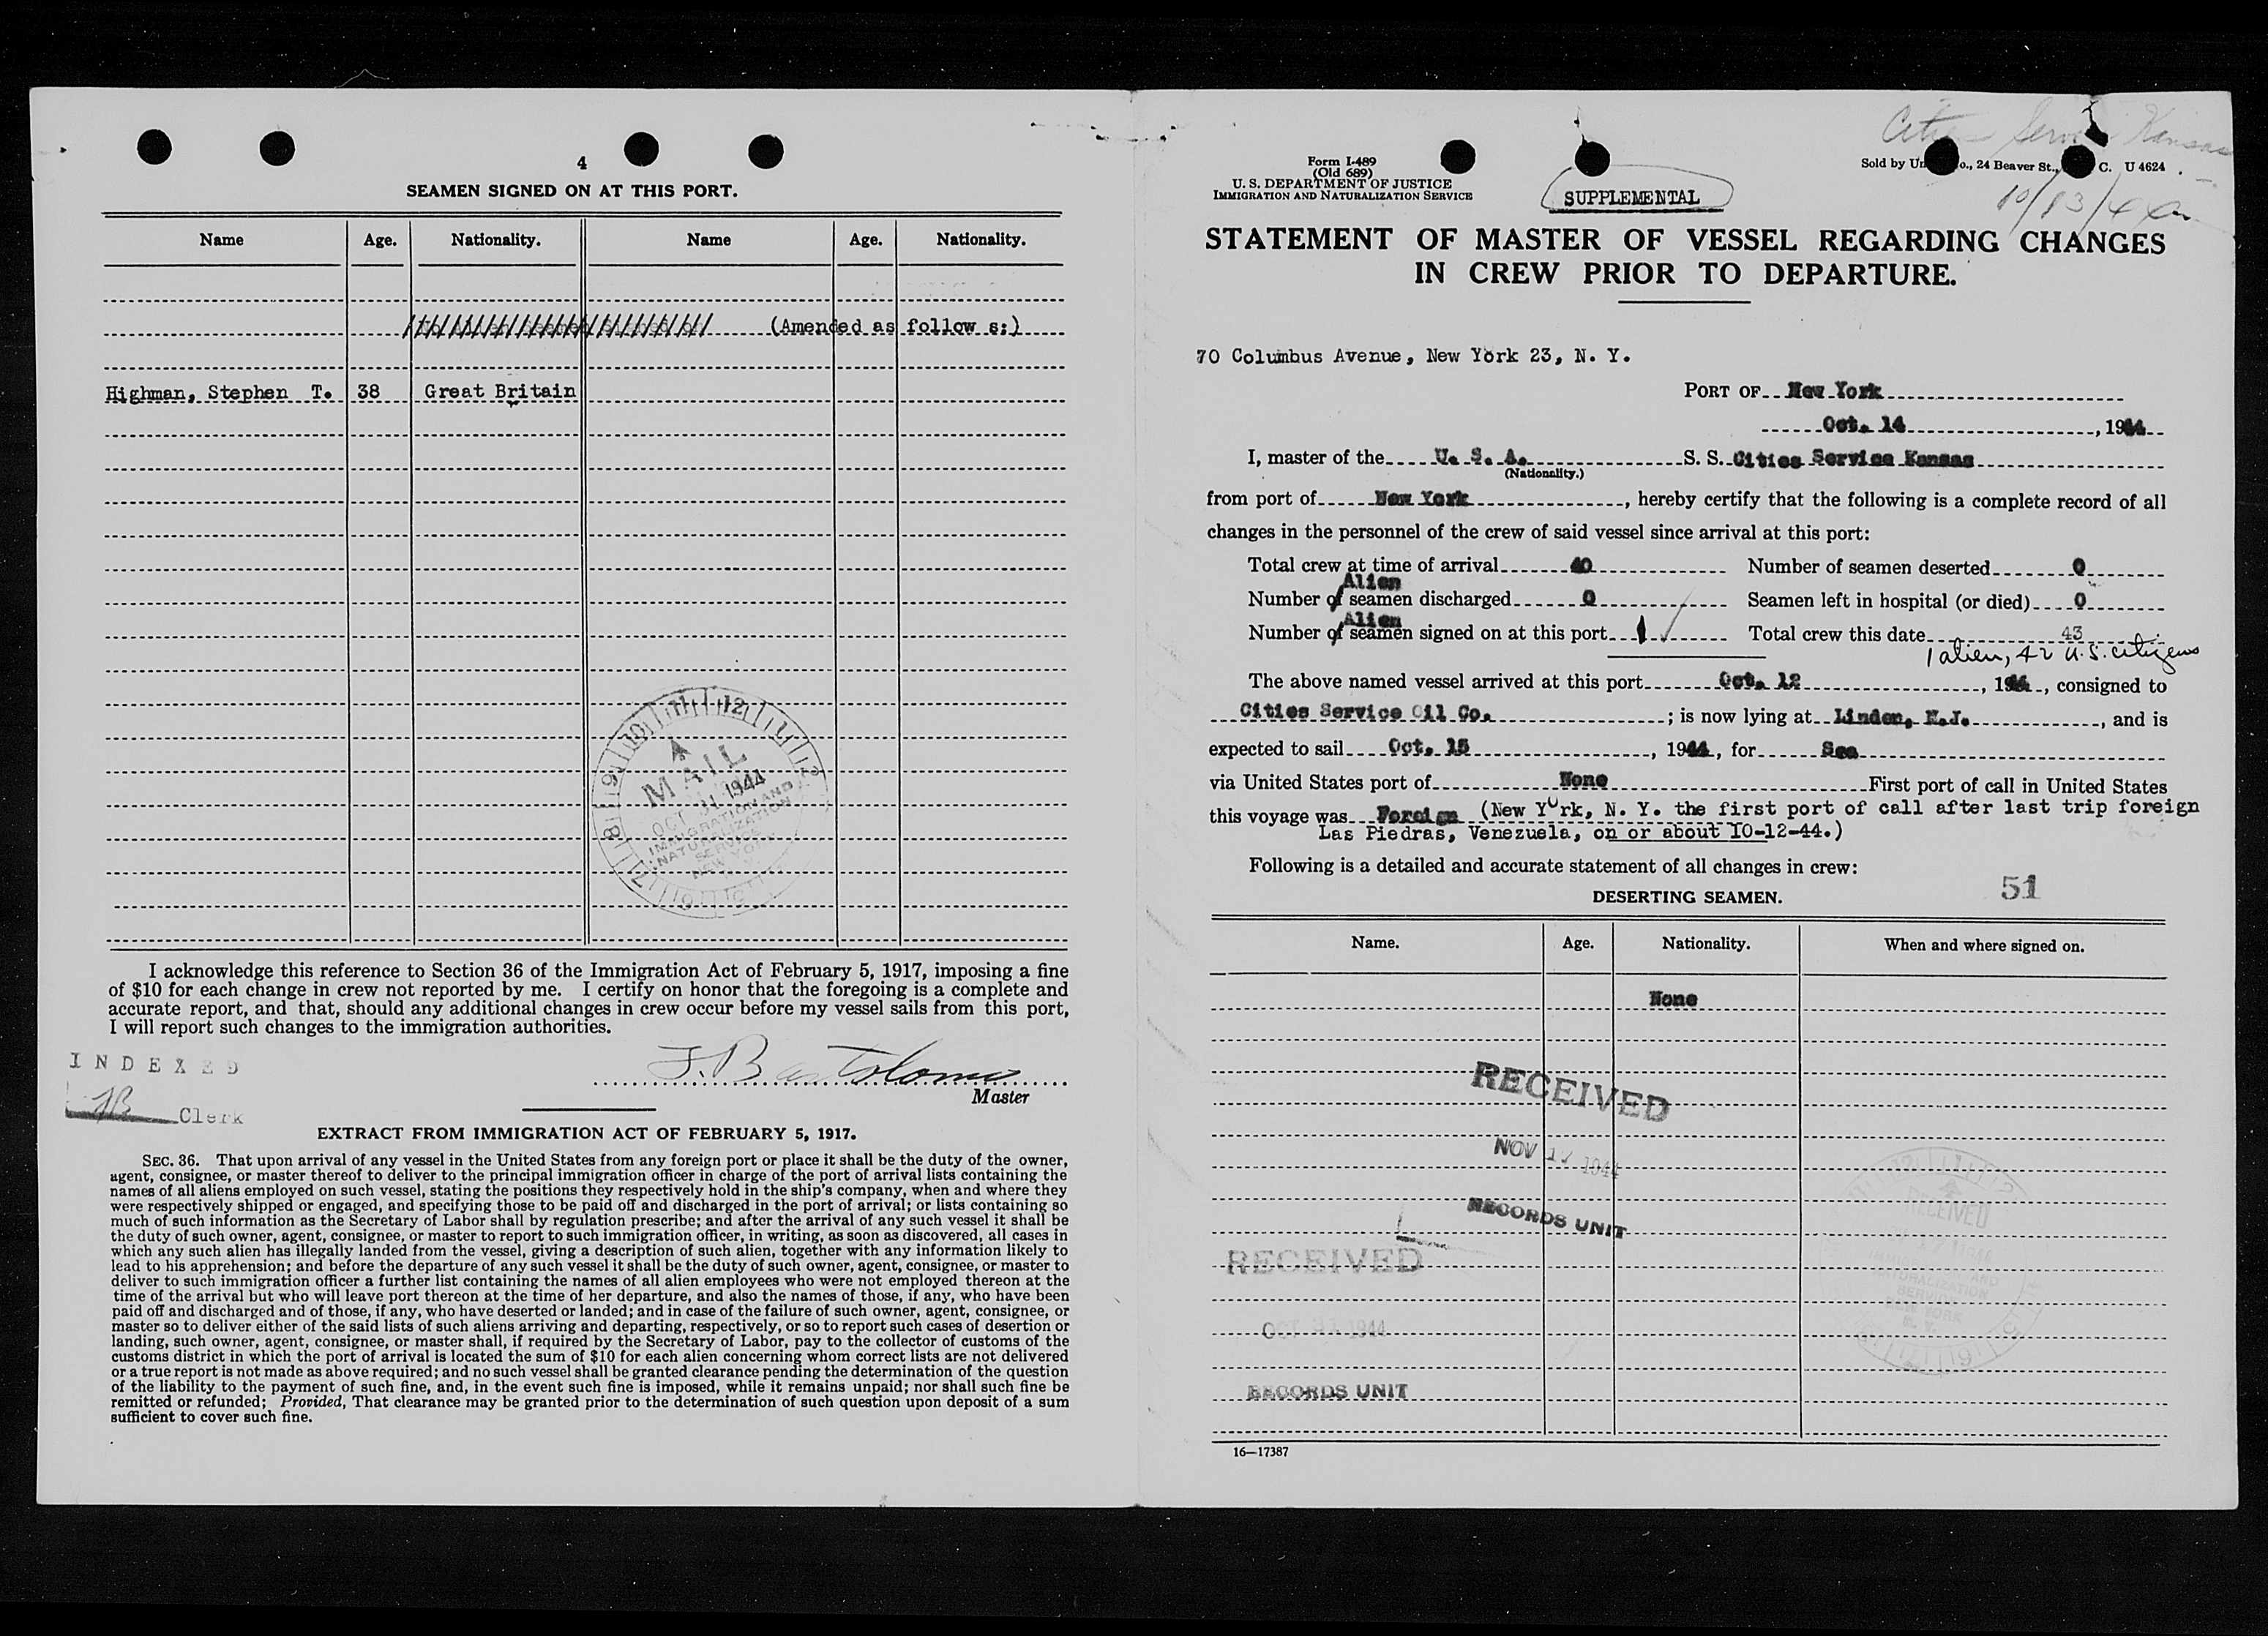 4
SEAMEN SIGNED ON AT THIS PORT.
Name Age. Nationality. Name Age. Nationality.
(Amended as follow s:)
Highman, Stephen T. 38 Great Britain
MAIL
OCT 31 1944
IMMIGRATION AND
NATURALIZATION
SERVICE
NEW YORK
I acknowledge this reference to Section 36 of the Immigration Act of February 5, 1917, imposing a fine
of $10 for each change in crew not reported by me. I certify on honor that the foregoing is a complete and
accurate report, and that, should any additional changes in crew occur before my vessel sails from this port,
I will report such changes to the immigration authorities.
INDEXED
Clerk
Master
EXTRACT FROM IMMIGRATION ACT OF FEBRUARY 5, 1917.
SEC. 36. That upon arrival of any vessel in the United States from any foreign port or place it shall be the duty of the owner,
agent, consignee, or master thereof to deliver to the principal immigration officer in charge of the port of arrival lists containing the
names of all aliens employed on such vessel, stating the positions they respectively hold in the ship's company, when and where they
were respectively shipped or engaged, and specifying those to be paid off and discharged in the port of arrival; or lists containing so
much of such information as the Secretary of Labor shall by regulation prescribe; and after the arrival of any such vessel it shall be
the duty of such owner, agent, consignee, or master to report to such immigration officer, in writing, as soon as discovered, all cases in
which any such alien has illegally landed from the vessel, giving a description of such alien, together with any information likely to
lead to his apprehension; and before the departure of any such vessel it shall be the duty of such owner, agent, consignee, or master to
deliver to such immigration officer a further list containing the names of all alien employees who were not employed thereon at the
time of the arrival but who will leave port thereon at the time of her departure, and also the names of those, if any, who have been
paid off and discharged and of those, if any, who have deserted or landed; and in case of the failure of such owner, agent, consignee, or
master so to deliver either of the said lists of such aliens arriving and departing, respectively, or so to report such cases of desertion or
landing, such owner, agent, consignee, or master shall, if required by the Secretary of Labor, pay to the collector of customs of the
customs district in which the port of arrival is located the sum of $10 for each alien concerning whom correct lists are not delivered
or a true report is not made as above required; and no such vessel shall be granted clearance pending the determination of the question
of the liability to the payment of such fine, and, in the event such fine is imposed, while it remains unpaid; nor shall such fine be
remitted or refunded; Provided, That clearance may be granted prior to the determination of such question upon deposit of a sum
sufficient to cover such fine.
Cities Service Kansas
Form I-489
(Old 689)
U. S. DEPARTMENT OF JUSTICE
IMMIGRATION AND NATURALIZATION SERVICE
SUPPLEMENTAL
Sold by Un o., 24 Beaver St., C. U 4624
10/13/44
STATEMENT OF MASTER OF VESSEL REGARDING CHANGES
IN CREW PRIOR TO DEPARTURE.
70 Columbus Avenue, New York 23, N. Y.
PORT OF New York
Oct. 14, 1944
I, master of the U. S. A. S. S. Cities Service Kansas
(Nationality.)
from port of New York, hereby certify that the following is a complete record of all
changes in the personnel of the crew of said vessel since arrival at this port:
Total crew at time of arrival 40 Number of seamen deserted 0
Alien
Number of seamen discharged 0 Seamen left in hospital (or died) 0
Alien
Number of seamen signed on at this port 1 Total crew this date 43
1 alien, 42 U.S. citizens
The above named vessel arrived at this port Oct. 12, 1944, consigned to
Cities Service Oil Co.; is now lying at Linden, N.J., and is
expected to sail Oct. 15, 1944, for Sea
via United States port of None First port of call in United States
this voyage was Foreign (New York, N. Y. the first port of call after last trip foreign
Las Piedras, Venezuela, on or about 10-12-44.)
Following is a detailed and accurate statement of all changes in crew:
DESERTING SEAMEN. 51
Name. Age. Nationality. When and where signed on.
None
RECEIVED
NOV 1944
RECORDS UNIT
RECEIVED
OCT 31 1944
RECORDS UNIT
RECEIVED
16—17387